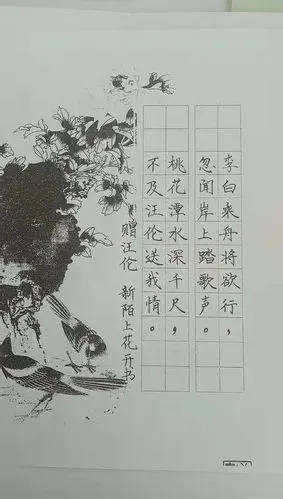 李白乘舟将欲行，
忽闻岸上踏歌声。
桃花潭水深千尺，
不及汪伦送我情。
赠汪伦 新陌上花开书